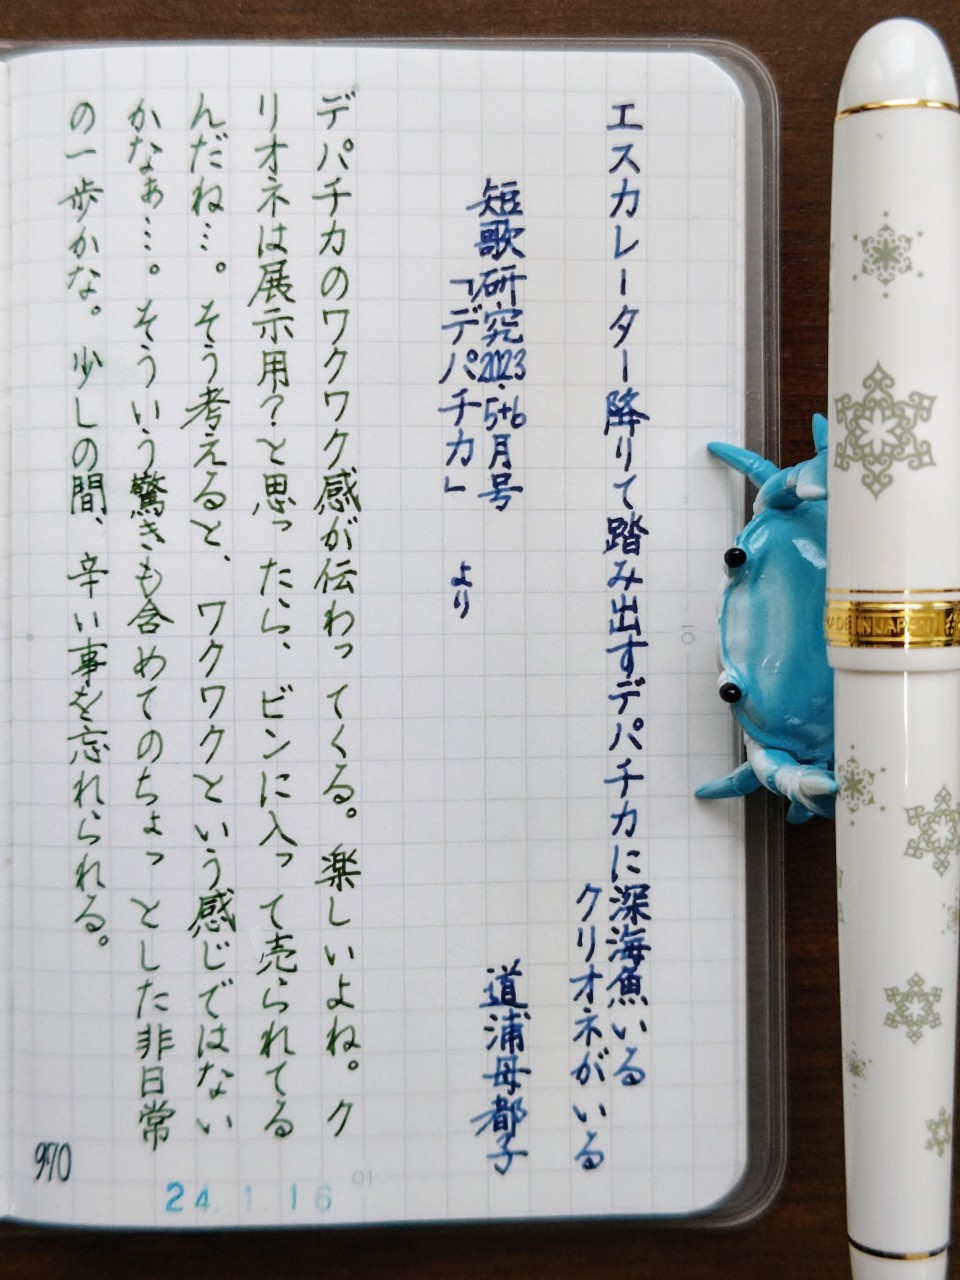 エスカレーター降りて踏み出すデパチカに深海魚いる
クリオネがいる
短歌研究2023.5+6月号
「デパチカ」 より
道浦母都子
デパチカのワクワク感が伝わってくる。楽しいよね。ク
リオネは展示用?と思ったら、ビンに入って売られてる
んだね…。そう考えると、ワクワクという感じではない
かなぁ…。そういう驚きも含めてのちょっとした非日常
の一歩かな。少しの間、辛い事を忘れられる。
970
24.1.16
10
MADE IN JAPAN